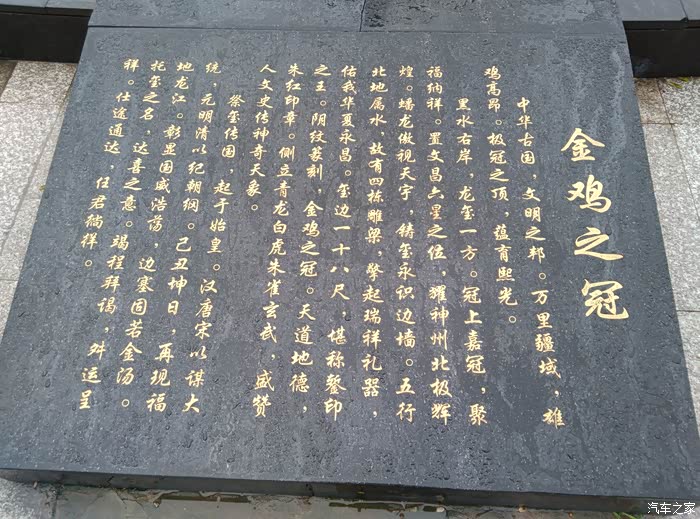 金鸡之冠
中华古国，文明之邦。万里疆域，雄
鸡高昂。极冠之顶，蕴育熙光。
黑水右岸，龙玺一方。冠上嘉冠，聚
福纳祥。置文昌六星之位，耀神州北极辉
煌。蟠龙傲视天宇，铸玺永识边墙。五行
北地属水，故有四栋雕梁，擎起瑞祥礼器，
佑我华夏永昌。玺边一十八尺，堪称鏊印
之王。阴纹篆刻，金鸡之冠。天道地德，
朱红印章。侧立青龙白虎朱雀玄武，盛赞
人文史传神奇天象。
祭玺传国，起于始皇。汉唐宋以谋大
统，元明清以纪朝纲。己丑坤日，再现福
地龙江。彰显国威浩荡，边塞固若金汤。
托玺之名，达喜之意。竭程拜谒，舛运呈
祥。仕途通达，任君徜徉。
汽车之家